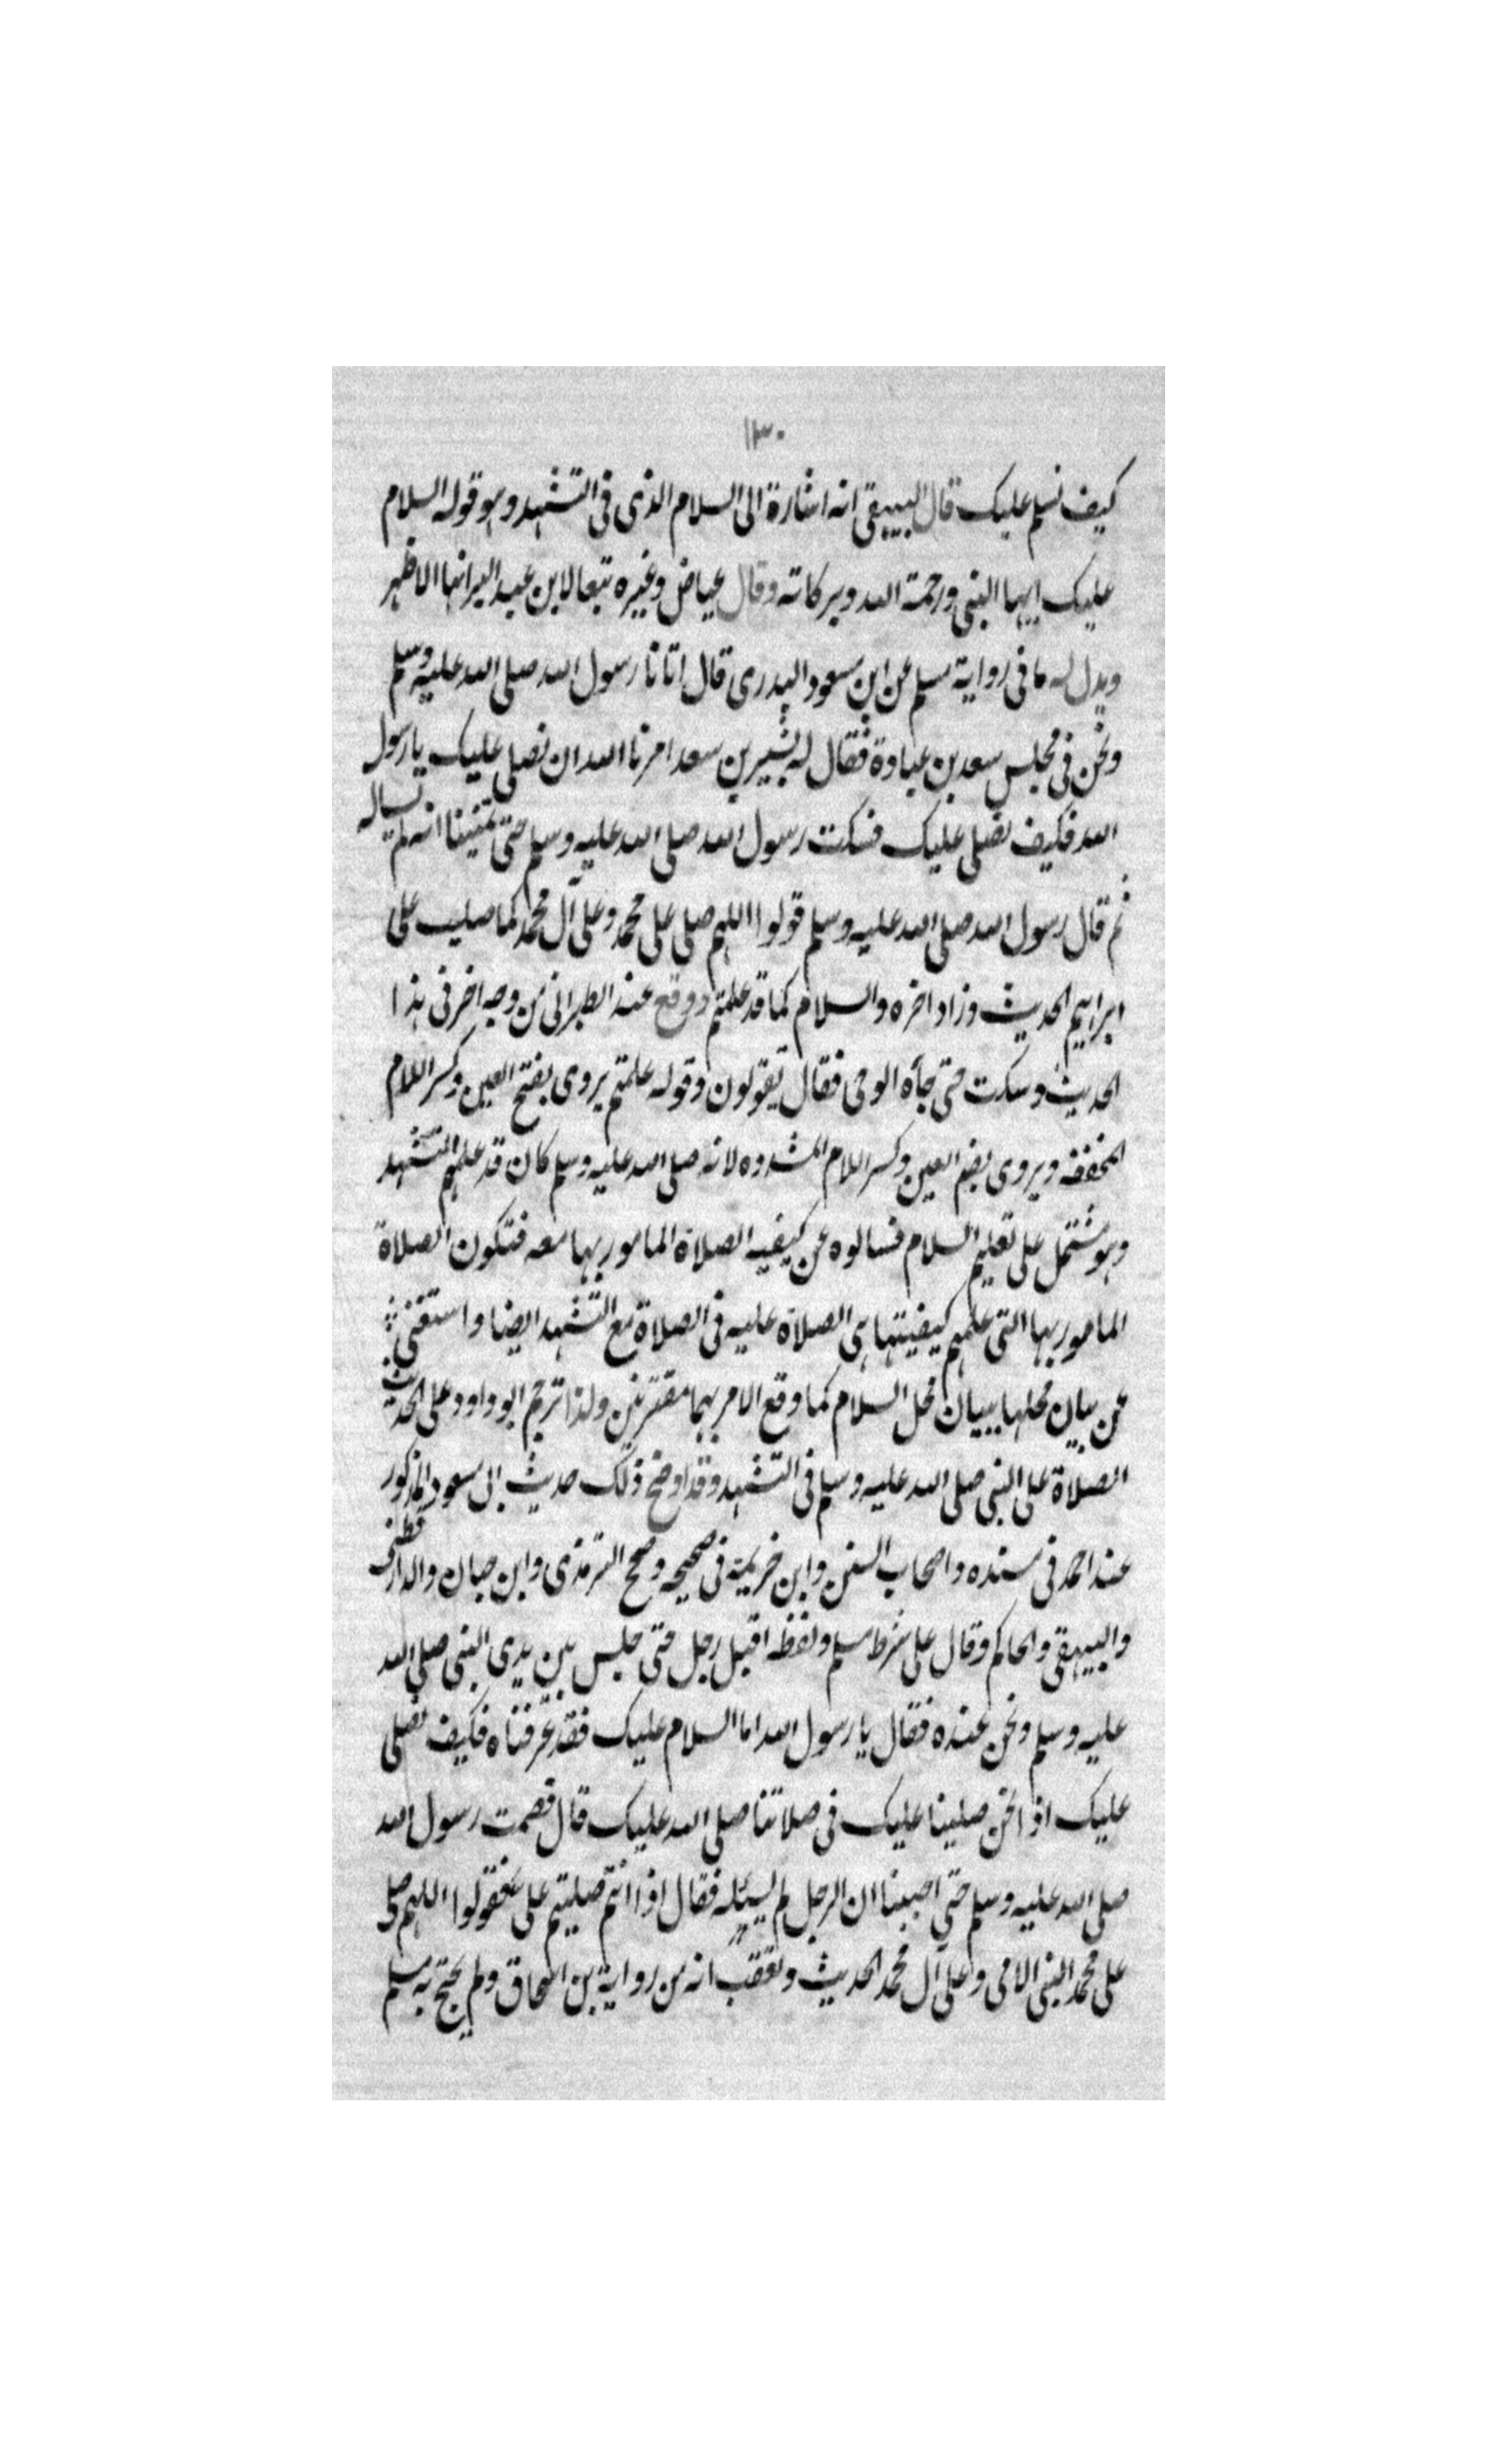 ١٣٠
كيف نسلم عليك قال البيهقى انه اشارة الى السلام الذى فى التشهد وهو قوله السلام
عليك ايها النبى ورحمة الله وبركاته وقال عياض وغيره تبعا لابن عبد البر انها الاظهر
ويدل له ما فى رواية مسلم عن ابن مسعود البدرى قال اتانا رسول الله صلى الله عليه وسلم
ونحن فى مجلس سعد بن عبادة فقال له بشير بن سعد امرنا الله ان نصلى عليك يا رسول
الله فكيف نصلى عليك فسكت رسول الله صلى الله عليه وسلم حتى تمنينا انه لم يساله
ثم قال رسول الله صلى الله عليه وسلم قولوا اللهم صلى على محمد وعلى آل محمد كما صليت على
ابراهيم الحديث وزاد اخره والسلام كما قد علمتم ووقع عند الطبرانى من وجه اخر فى هذا
الحديث وسكت حتى جأه الوحى فقال تقولون وقوله علمتم يروى بفتح العين وكسر اللام
المخففه ويروى بضم العين وكسر اللام المشدده لانه صلى الله عليه وسلم كان قد علمهم التشهد
وهو مشتمل على تعليم السلام فسالوه عن كيفيه الصلاة المامور بها معه فتكون الصلاة
المامور بها التى علمهم كيفيتها هى الصلاة عليه فى الصلاة مع التشهد ايضا واستغنى
عن بيان محلها ببيان محل السلام كما وقع الامر بهما مقترنين ولذا ترجم ابو داود على الحديث
الصلاة على النبى صلى الله عليه وسلم فى التشهد وقد اوضح ذلك حديث ابى مسعود المذكور
عند احمد فى مسنده واصحاب السنن وابن خزيمة فى صحيحه وصحح الترمذى وابن حبان والدارقطنى
والبيهقى والحاكم وقال على شرط مسلم ولفظه اقبل رجل حتى جلس بين يدى النبى صلى الله
عليه وسلم ونحن عنده فقال يا رسول الله اما السلام عليك فقد عرفناه فكيف نصلى
عليك اذا نحن صلينا عليك فى صلاتنا صلى الله عليك قال فصمت رسول الله
صلى الله عليه وسلم حتى احببنا ان الرجل لم يسئله فقال اذا انتم صليتم على فقولوا اللهم صل
على محمد النبى الامى وعلى آل محمد الحديث وتعقب انه من رواية بن اسحاق ولم يحتج به مسلم